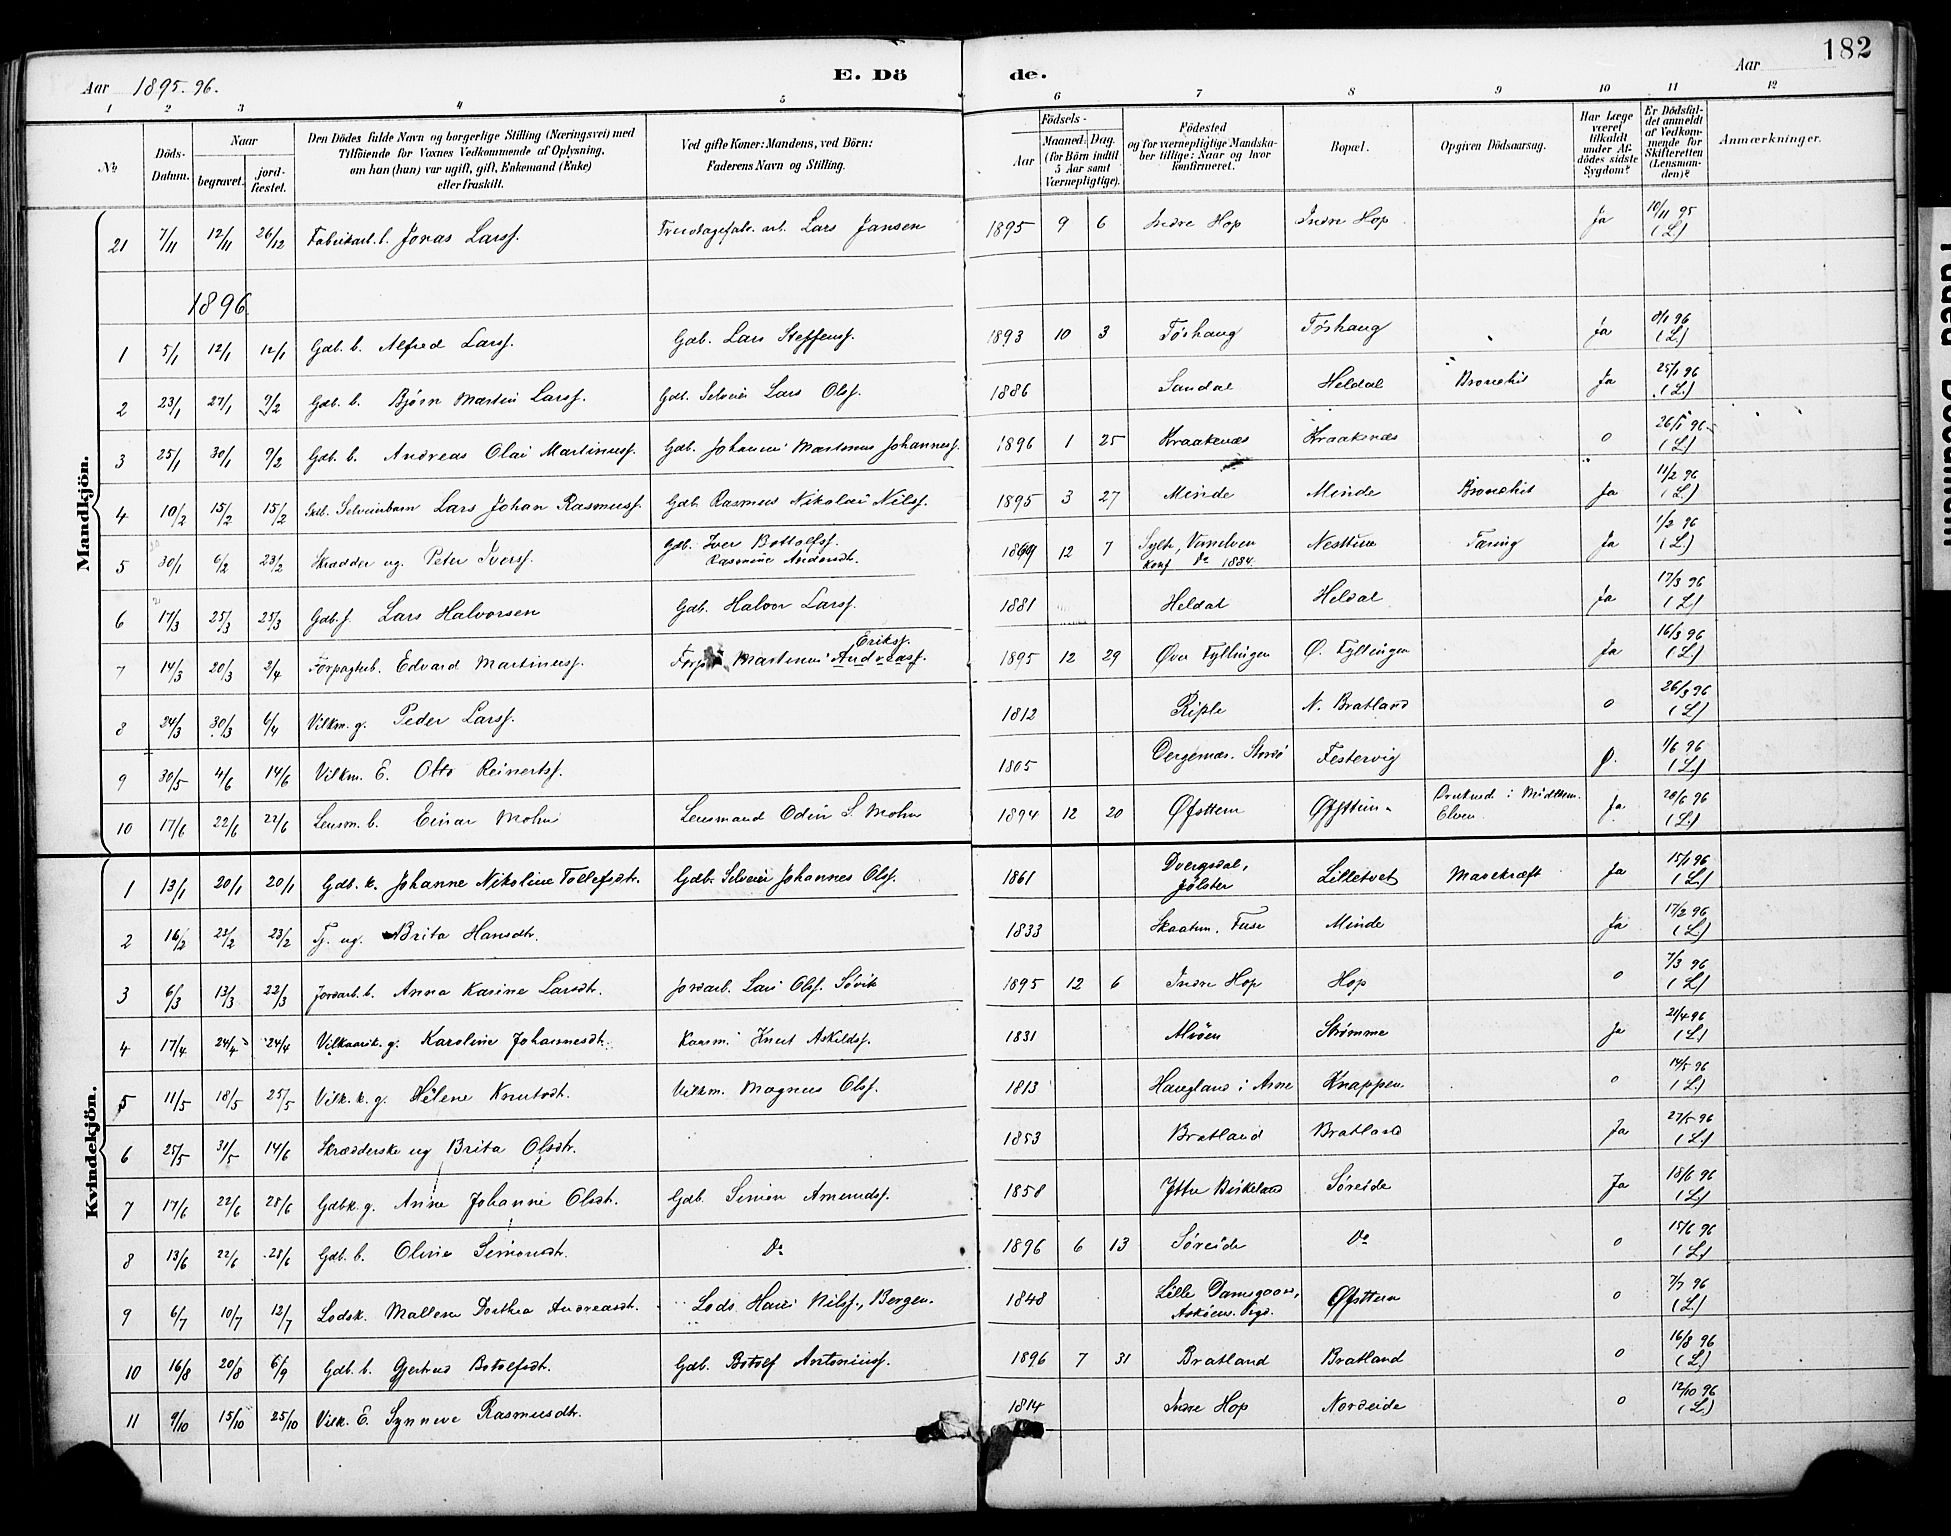 182
Aar 1895. 96.
E. Döde.
Aar
1 2 3 4 5 6 7 8 9 10 11 12
No.
Döds-Datum.
Naar
begravet.
jord-fæstet.
Den Dödes fulde Navn og borgerlige Stilling (Næringsvei) med Tilföiende for Voxnes Vedkommende af Oplysning, om han (hun) var ugift, gift, Enkemand (Enke) eller fraskilt.
Ved gifte Koner: Mandens, ved Börn: Faderens Navn og Stilling.
Födsels-
Aar
Maaned. Dag.
(for Börn indtil 5 Aar samt Værnepligtige).
Födested og for værnepligtige Mandskaber tillige: Naar og hvor konfirmeret.
Bopæl.
Opgiven Dödsaarsag.
Har Læge været tilkaldt under Afdödes sidste Sygdom?
Er Dödsfaldet anmeldt af Vedkommende for Skifteretten (Lensmanden)?
Anmærkninger.
Mandkjön.
21 7/11 12/11 26/12 Fabrikarb. b. Jonas Larsf. Lars Jansen 1895 9 6 Indre Hop Indre Hop Ja 10/11 95 (L)
1896
1 5/1 12/1 12/1 Gdb. b. Alfred Larsf. Gdb. Lars Steffensf. 1893 10 3 Töshaug Töshaug Ja 8/1 96 (L)
2 23/1 27/1 9/2 Gdb. b. Bjørn Martin Larsf. Gdb. Selveier Lars Olsf. 1886 Sandal Heldal Bronchit Ja 25/1 96 (L)
3 25/1 30/1 9/2 Gdb. b. Andreas Olai Martinusf. Gdb. Johannes Martinus Johannesf. 1896 1 25 Kraakenæs Kraakenæs o 26/1 96 (L)
4 10/2 15/2 15/2 Gdb. Selveierbarn Lars Johan Rasmusf. Gdb. Rasmus Nikolai Nilsf. 1895 3 27 Minde Minde Bronchit Ja 11/2 96 (L)
5 30/1 6/2 23/2 Skrædder ug. Peter Iversf. Gdb. Iver Bottolfsf. Rasmine Andersdt. 1869 12 7 Sylte, Vanelven Konf Do 1884. Nesttun Tæring Ja 1/2 96 (L)
6 17/3 25/3 25/3 Gdb. f. Lars Halvorsen Gdb. Halvor Larsf. 1881 Heldal Heldal Ja 17/3 96 (L)
7 14/3 20/3 2/4 Forpagterb. Edvard Martinusf. Forp. Martinus Andreasf. Eriksf. 1895 12 29 Øvre Fyllingen Ø. Fyllingen Ja 16/3 96 (L)
8 24/3 30/3 6/4 Vilkm. g. Peder Larsf. 1812 Riple N. Bratland o 26/3 96 (L)
9 30/5 4/6 14/6 Vilkm. E. Otto Reinertsf. 1805 Dergenæs. Stordö Festervig o. 1/6 96 (L)
10 17/6 22/6 22/6 Lensm. b. Einar Mohn Lensmand Odin S. Mohn 1894 12 20 Øfsttun Øfsttun Druknet i Midttun Elven. Ja 20/6 96 (L)
Kvindekjön.
1 13/1 20/1 20/1 Gdb. k. Johanne Nikoline Tollefsdt. Gdb. Selveier Johannes Olsf. 1861 Dvergsdal, Jölster Lilletvet Mavekræft Ja 15/1 96 (L)
2 16/2 23/2 23/2 Tj. ug. Brita Hansdt. 1833 Skaatun. Fuse Minde Ja 17/2 96 (L)
3 6/3 13/3 22/3 Jordarb. b. Anna Karine Larsdt. Jordarb. Lars Olsf. Søvik 1895 12 6 Indre Hop Hop o 7/3 96 (L)
4 17/4 24/4 24/4 Vilkaarsk. g. Karoline Johannesdt. Kaarm. Knut Askildsf. 1831 Alvöen Strømme Ja 21/4 96 (L)
5 11/5 18/5 25/5 Vilk. k. g. Helene Knutsdt. Vilkm. Magnus Olsf. 1813 Haugland i Arne Knappen o 14/5 96 (L)
6 25/5 31/5 14/6 Skrædderske ug Brita Olsdt. 1853 Bratland Bratland Ja 27/5 96 (L)
7 17/6 22/6 28/6 Gdbk. g. Anne Johanne Olsdt. Gdb. Simon Amundsf. 1858 Ytre Birkeland Söreide Ja 18/6 96 (L)
8 13/6 22/6 28/6 Gdb. b. Oline Simonsdt. Do 1896 6 13 Søreide Do o 15/6 96 (L)
9 6/7 10/7 12/7 Lodsk. Mallene Dorthea Andreasdt. Lods. Hans Nilsf., Bergen. 1848 Lille Damsgaard, Askøens Prgd. Øfsttun o 7/7 96 (L)
10 16/8 20/8 6/9 Gdb. b. Gjertrud Botolfsdt. Gdb. Botolf Antoniusf. 1896 7 31 Bratland Bratland o 16/8 96 (L)
11 9/10 15/10 25/10 Vilk. E. Synneve Rasmusdtr. 1814 Indre Hop Nordeide o 12/10 96 (L)